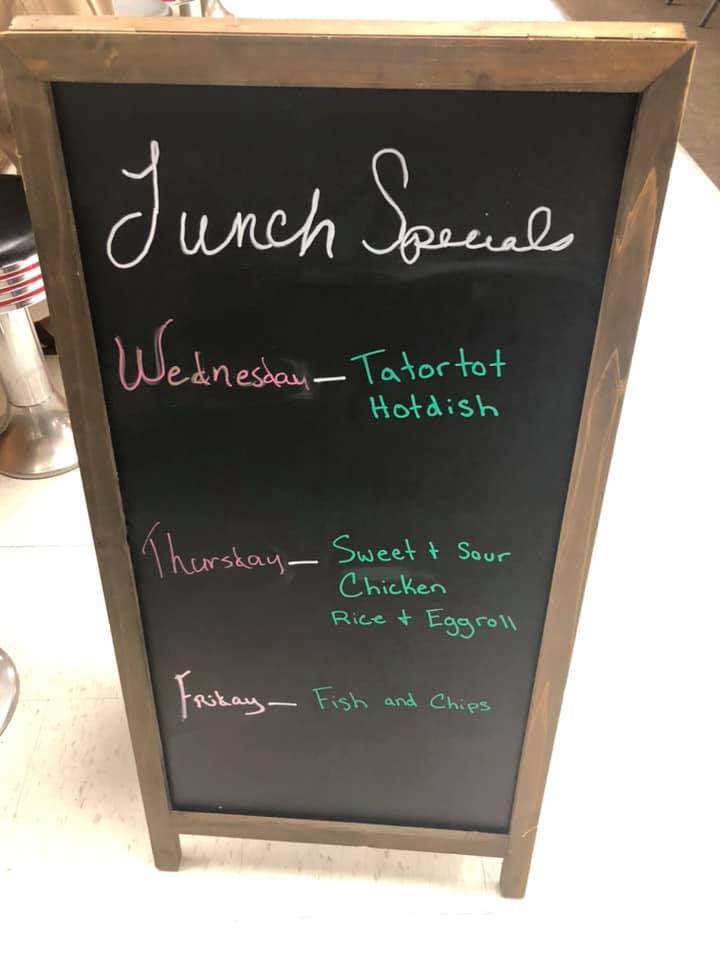 Lunch Specials
Wednesday — Tatortot
Hotdish
Thursday — Sweet + Sour
Chicken
Rice + Eggroll
Friday — Fish and Chips